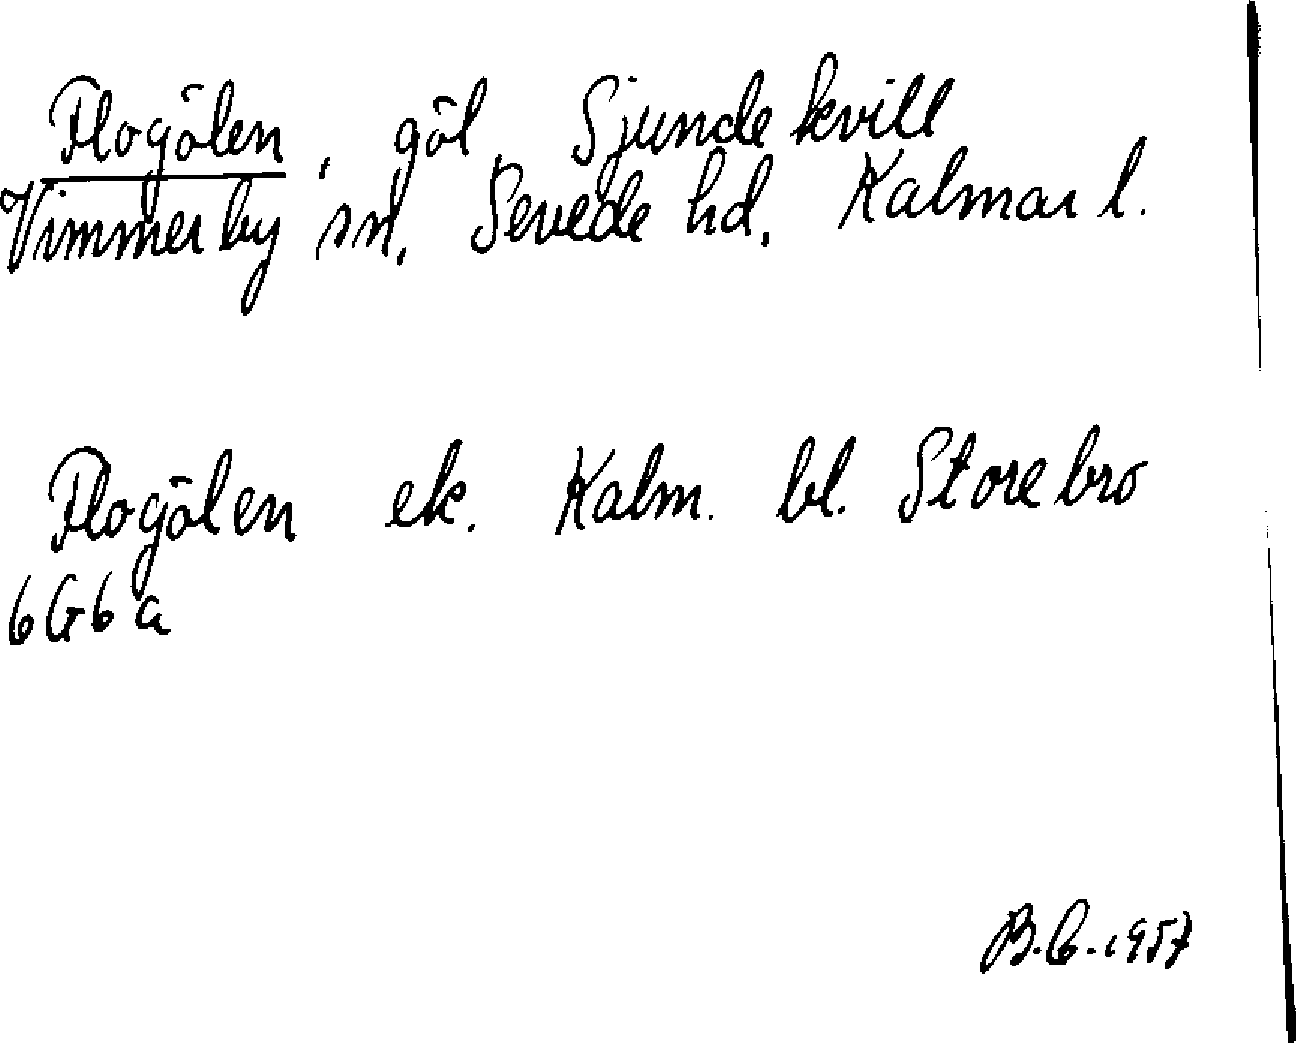 Flogölen, göl, Sjundekvill
Vimmerby sn, Sevede hd, Kalmar l.
Flogölen ek. Kalm. bl. Storebro
6G6a
B.C. 1957